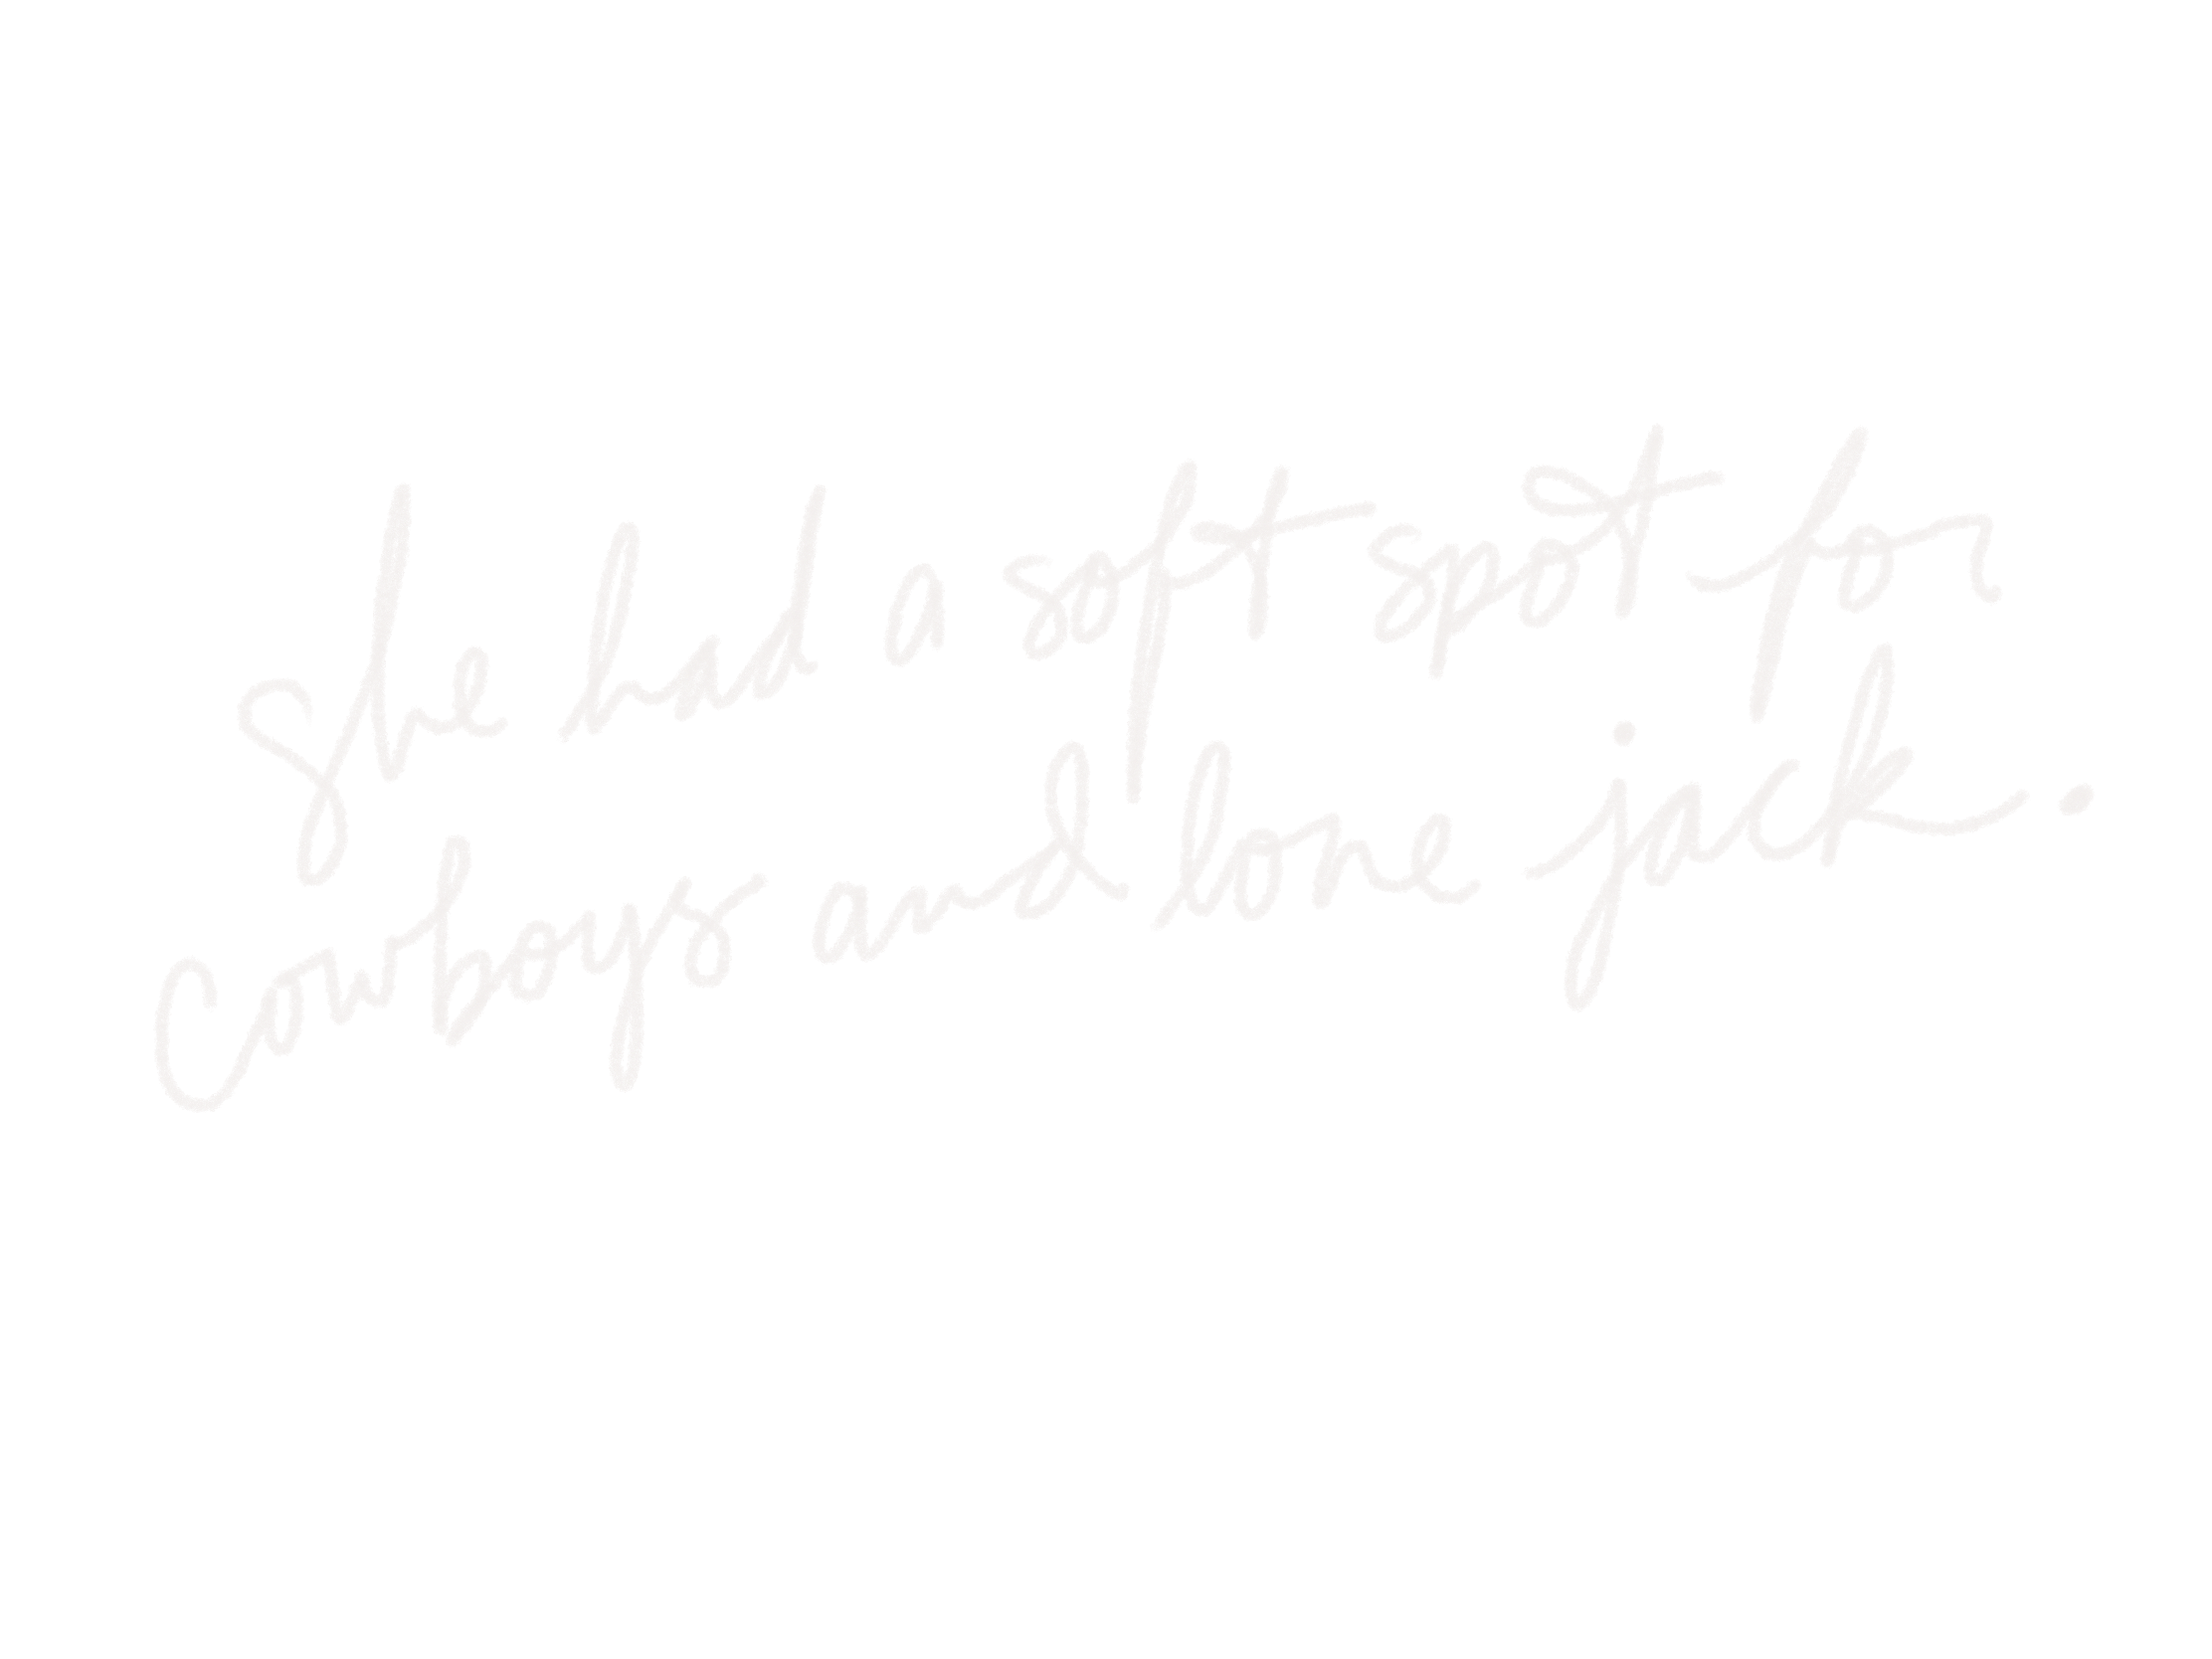 She had a soft spot for
Cowboys and lone jack.